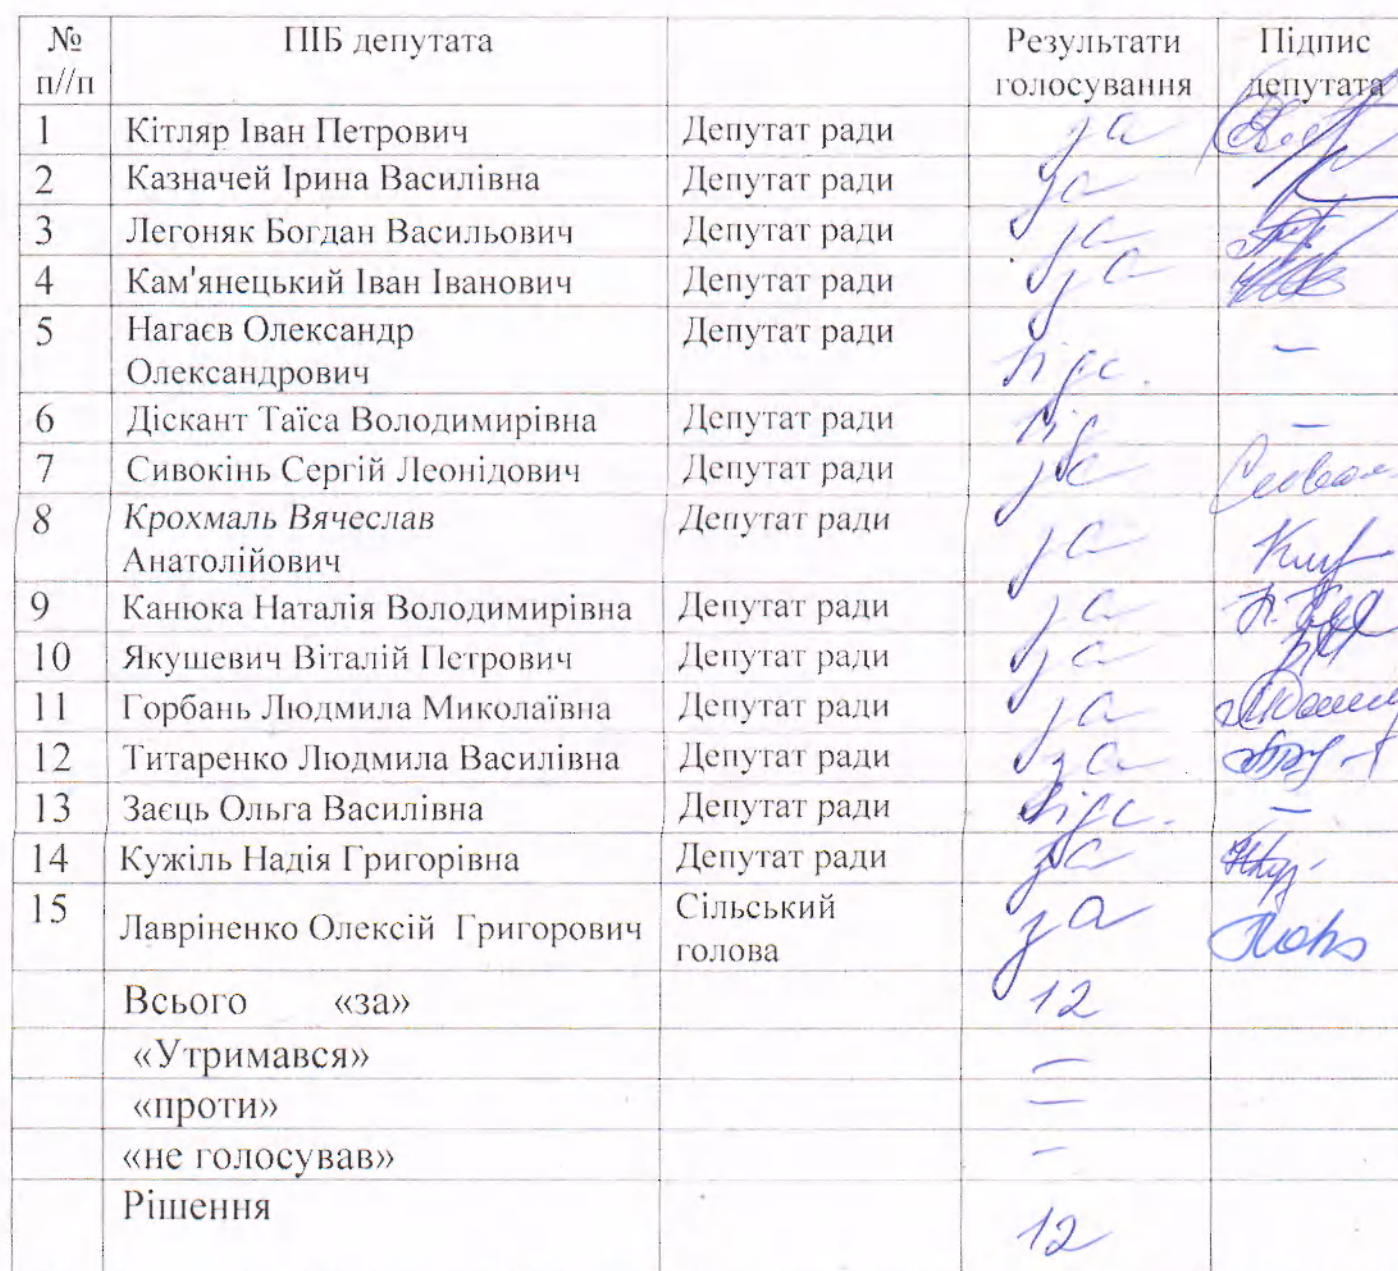 № ПІБ депутата Результати Підпис
п//п голосування депутата
1 Кітляр Іван Петрович Депутат ради за
2 Казначей Ірина Василівна Депутат ради за
3 Легоняк Богдан Васильович Депутат ради за
4 Кам'янецький Іван Іванович Депутат ради за
5 Нагаєв Олександр Депутат ради
Олександрович відс. –
6 Діскант Таїса Володимирівна Депутат ради –
7 Сивокінь Сергій Леонідович Депутат ради за
8 Крохмаль Вячеслав Депутат ради
Анатолійович за
9 Канюка Наталія Володимирівна Депутат ради за
10 Якушевич Віталій Петрович Депутат ради за
11 Горбань Людмила Миколаївна Депутат ради за
12 Титаренко Людмила Василівна Депутат ради за
13 Заєць Ольга Василівна Депутат ради відс. –
14 Кужіль Надія Григорівна Депутат ради за
15 Лавріненко Олексій Григорович Сільський за
голова
Всього «за» 12
«Утримався» –
«проти» –
«не голосував» –
Рішення
12